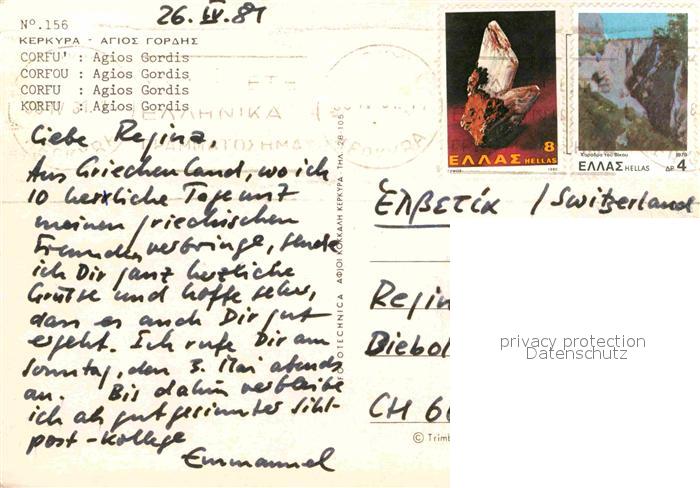 26. IV. 81
Nº.156
ΚΕΡΚΥΡΑ - ΑΓΙΟΣ ΓΟΡΔΗΣ
CORFU' : Agios Gordis
CORFOU : Agios Gordis
CORFU : Agios Gordis
KORFU : Agios Gordis
ΕΛΛΗΝΙΚΑ
ΓΡΑΜΜΑΤΟΣΗΜΑ
8
ΕΛΛΑΣ HELLAS
1980
Χαράδρα του Βίκου 1979
ΕΛΛΑΣ HELLAS ΔΡ. 4
Liebe Regina,
Aus Griechenland, wo ich
10 herrliche Tage mit
meinen griechischen
Freunden verbringe, sende
ich Dir ganz herzliche
Grüsse und hoffe sehr,
dass es auch Dir gut
ergeht. Ich rufe Dir am
Sonntag, den 3. Mai abends
an. Bis dahin verbleibe
ich als gutgesinnter Sihl-
post-Kollege
Emmanuel
ΑΦΙΟΙ ΚΟΚΚΑΛΗ ΚΕΡΚΥΡΑ - ΤΗΛ. 28-105
Ἑλβετία / Switzerland
Regin
Biebol
CH 60
© Trimb
privacy protection
Datenschutz